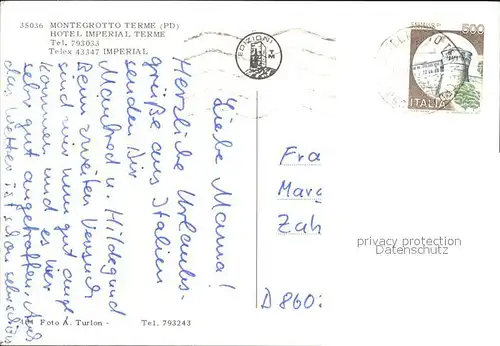 35036 MONTEGROTTO TERME (PD)
HOTEL IMPERIAL TERME
Tel. 793033
Telex 43347 IMPERIAL
EDIZIONI
TM
500
ITALIA
Liebe Mama!
Herzliche Urlaubs-
grüße aus Italien
senden Dir
Manfred u. Hildegund
Beim zweiten Versuch
sind wir nun gut ange-
kommen und es hier
sehr gut angetroffen. Auch
das Wetter ist schon sehr schön
Fra
Marg
Zah
D 860
privacy protection
Datenschutz
Foto A. Turlon - Tel. 793243